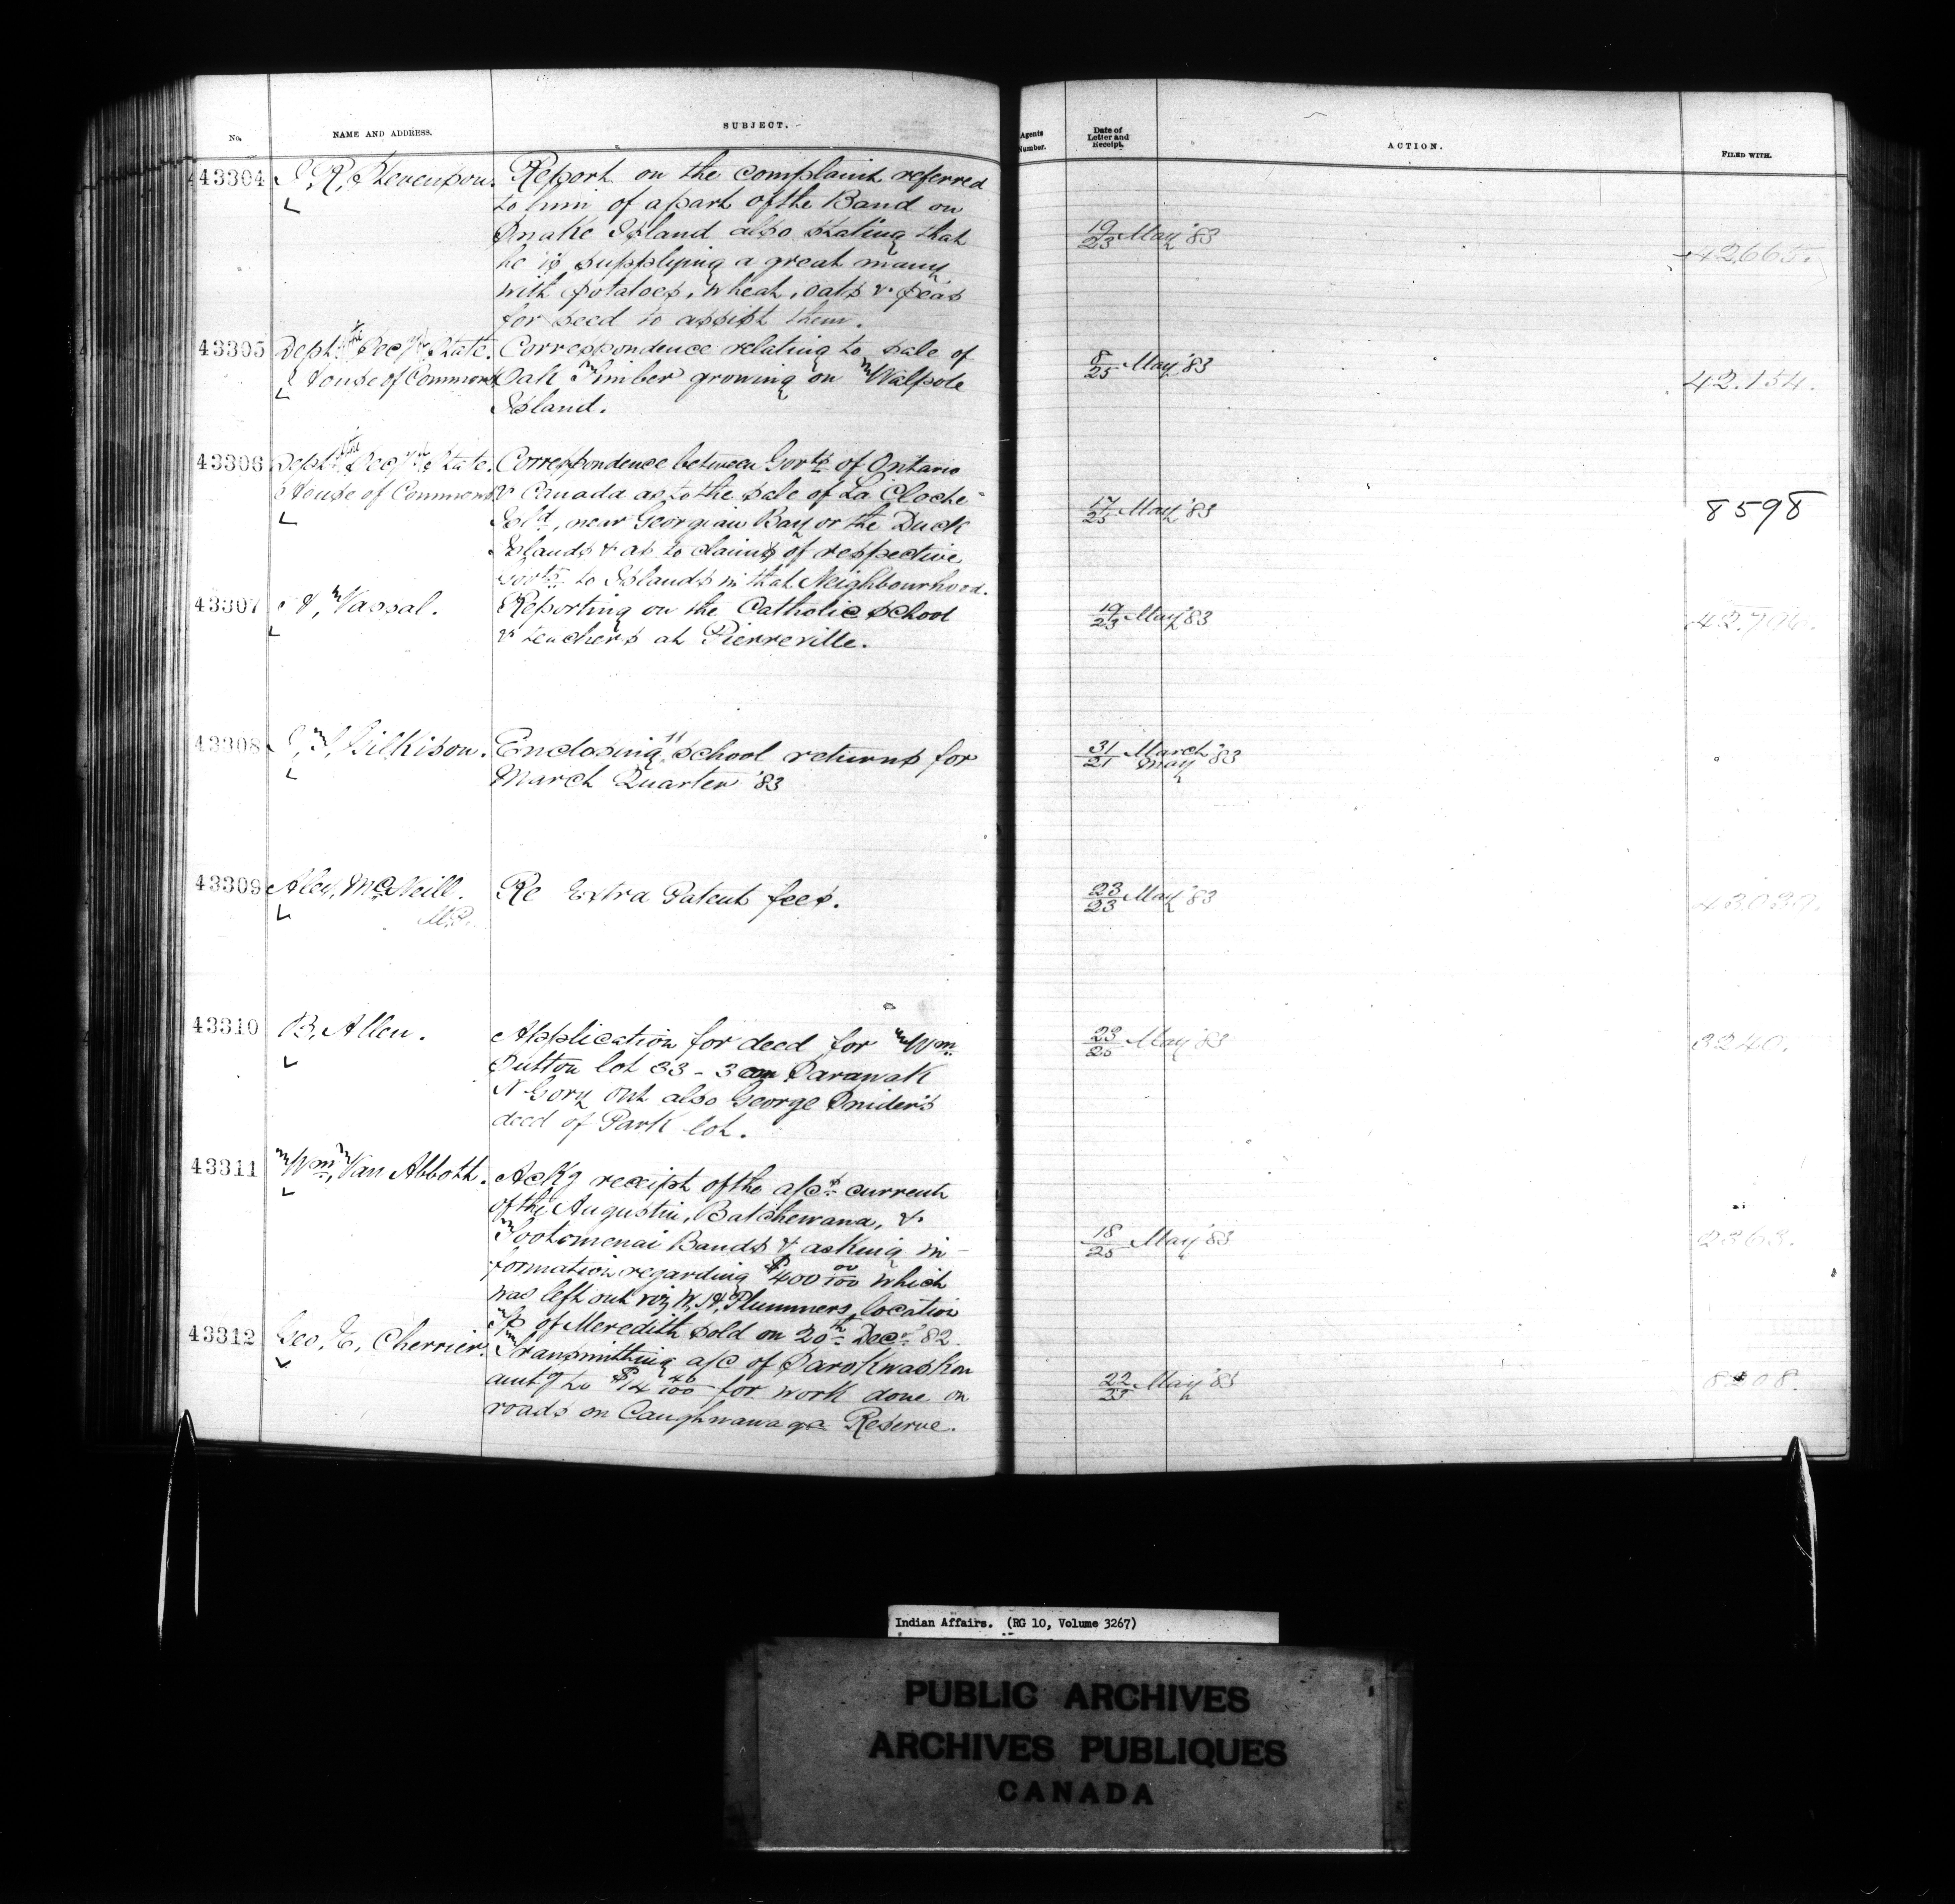 No.
NAME AND ADDRESS.
SUBJECT.
Agents Number.
Date of Letter and Receipt.
ACTION.
FILED WITH.
43304
J. R. Stevenson.
Report on the complaint referred
to him of a part of the Band on
Snake Island also stating that
he is supplying a great many
with potatoes, wheat, oats & peas
for seed to assist them.
19/23 May '83
42665.
43305
Dept. Secy State.
House of Commons
Correspondence relating to sale of
Oak Timber growing on Walpole
Island.
8/25 May '83
42.154.
43306
Dept. Secy State.
House of Commons
Correspondence between Govts of Ontario
& Canada as to the sale of La Cloche
Isld, near Georgian Bay or the Duck
Islands & as to claims of respective
Govts to Islands in that Neighbourhood.
17/25 May '83
8598
43307
H. Vassal.
Reporting on the Catholic school
& teachers at Pierreville.
19/23 May '83
43308
J. T. Gilkison.
Enclosing 11 school returns for
March Quarter '83
31/21 March May '83
43309
Alex. McNeill.
M.P.
Re Extra Patent fees.
23/23 May '83
43.039.
43310
B. Allen.
Application for deed for Wm
Sutton lot 33 - 3 con Sarawak
N Gory Ont also George Snider's
deed of Park lot.
23/25 May '83
3240.
43311
Wm Van Abbott.
Ackg receipt of the a/cs current
of the Augustin, Batchewana, &
Tootomenai Bands & asking in-
formation regarding $400 00/100 which
was left out viz W. H. Plummers location
Tp of Meredith sold on 20th Decr '82.
18/25 May '83
2363.
43312
Geo. E. Cherrier.
Transmitting a/c of Sarokwaskon
amtg to $14 40/100 for work done on
roads on Caughnawaga Reserve.
22/25 May '83
Indian Affairs. (RG 10, Volume 3267)
PUBLIC ARCHIVES
ARCHIVES PUBLIQUES
CANADA